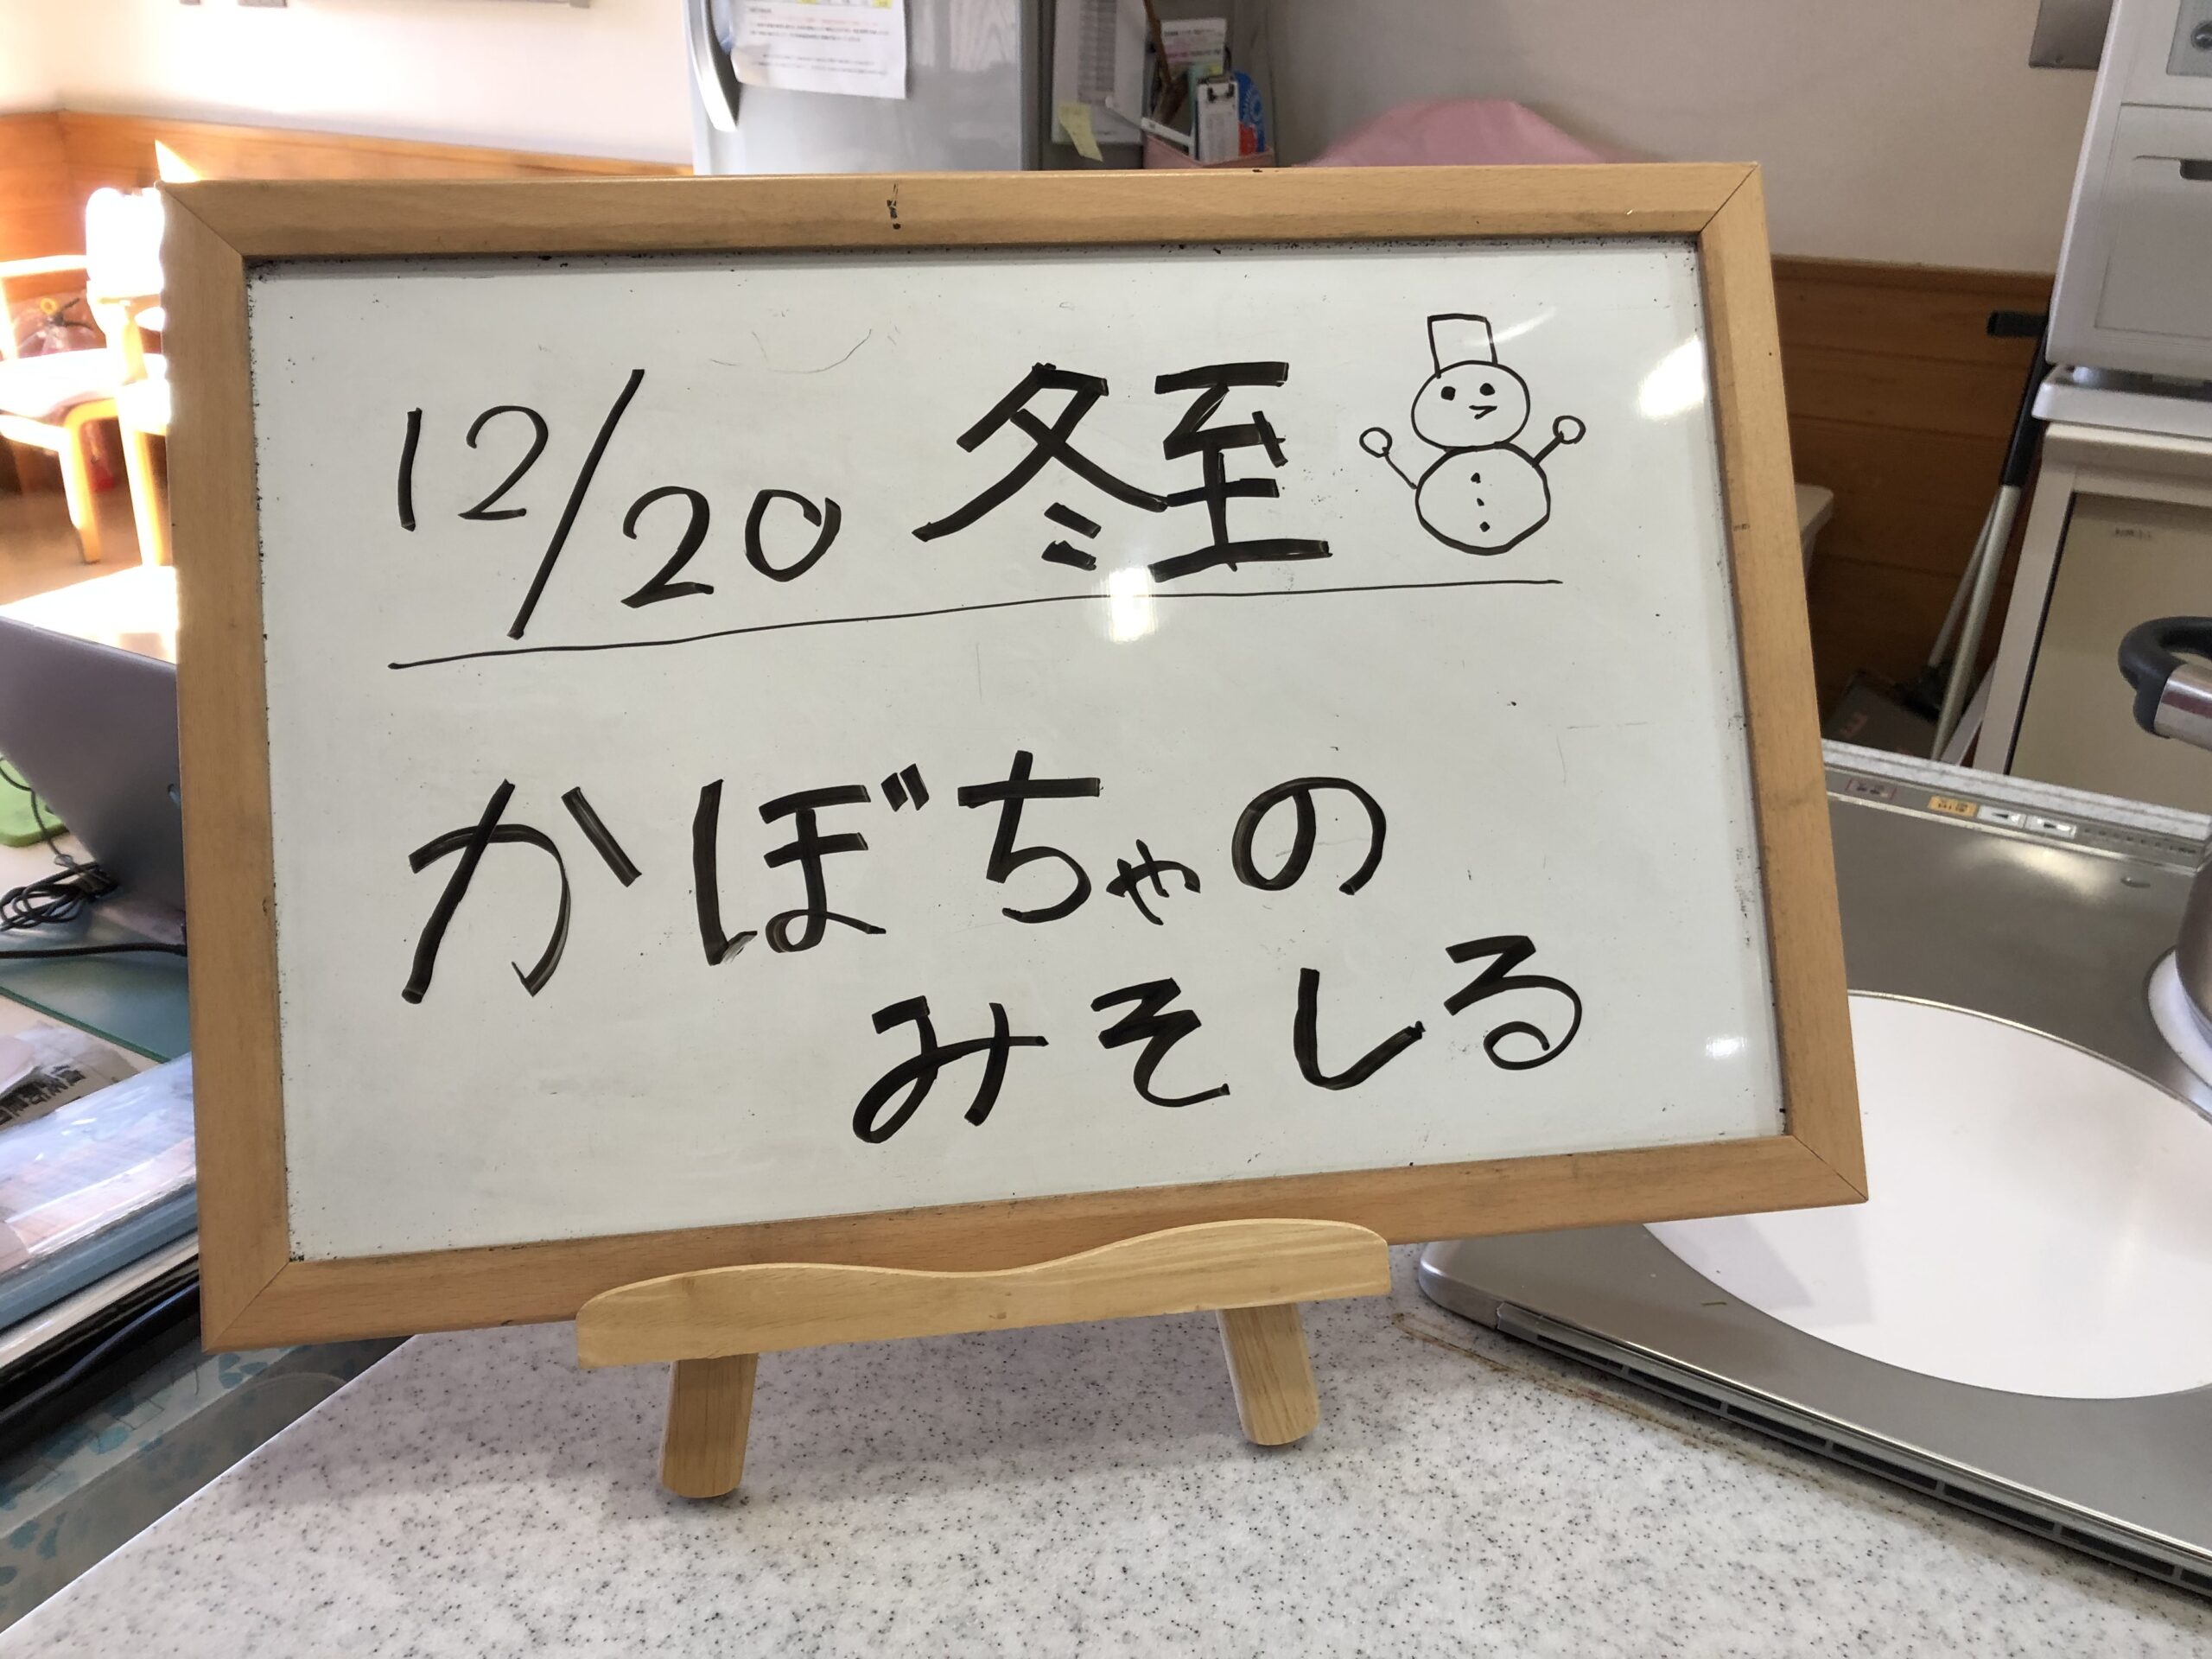 12/20 冬至
かぼちゃの
みそしる